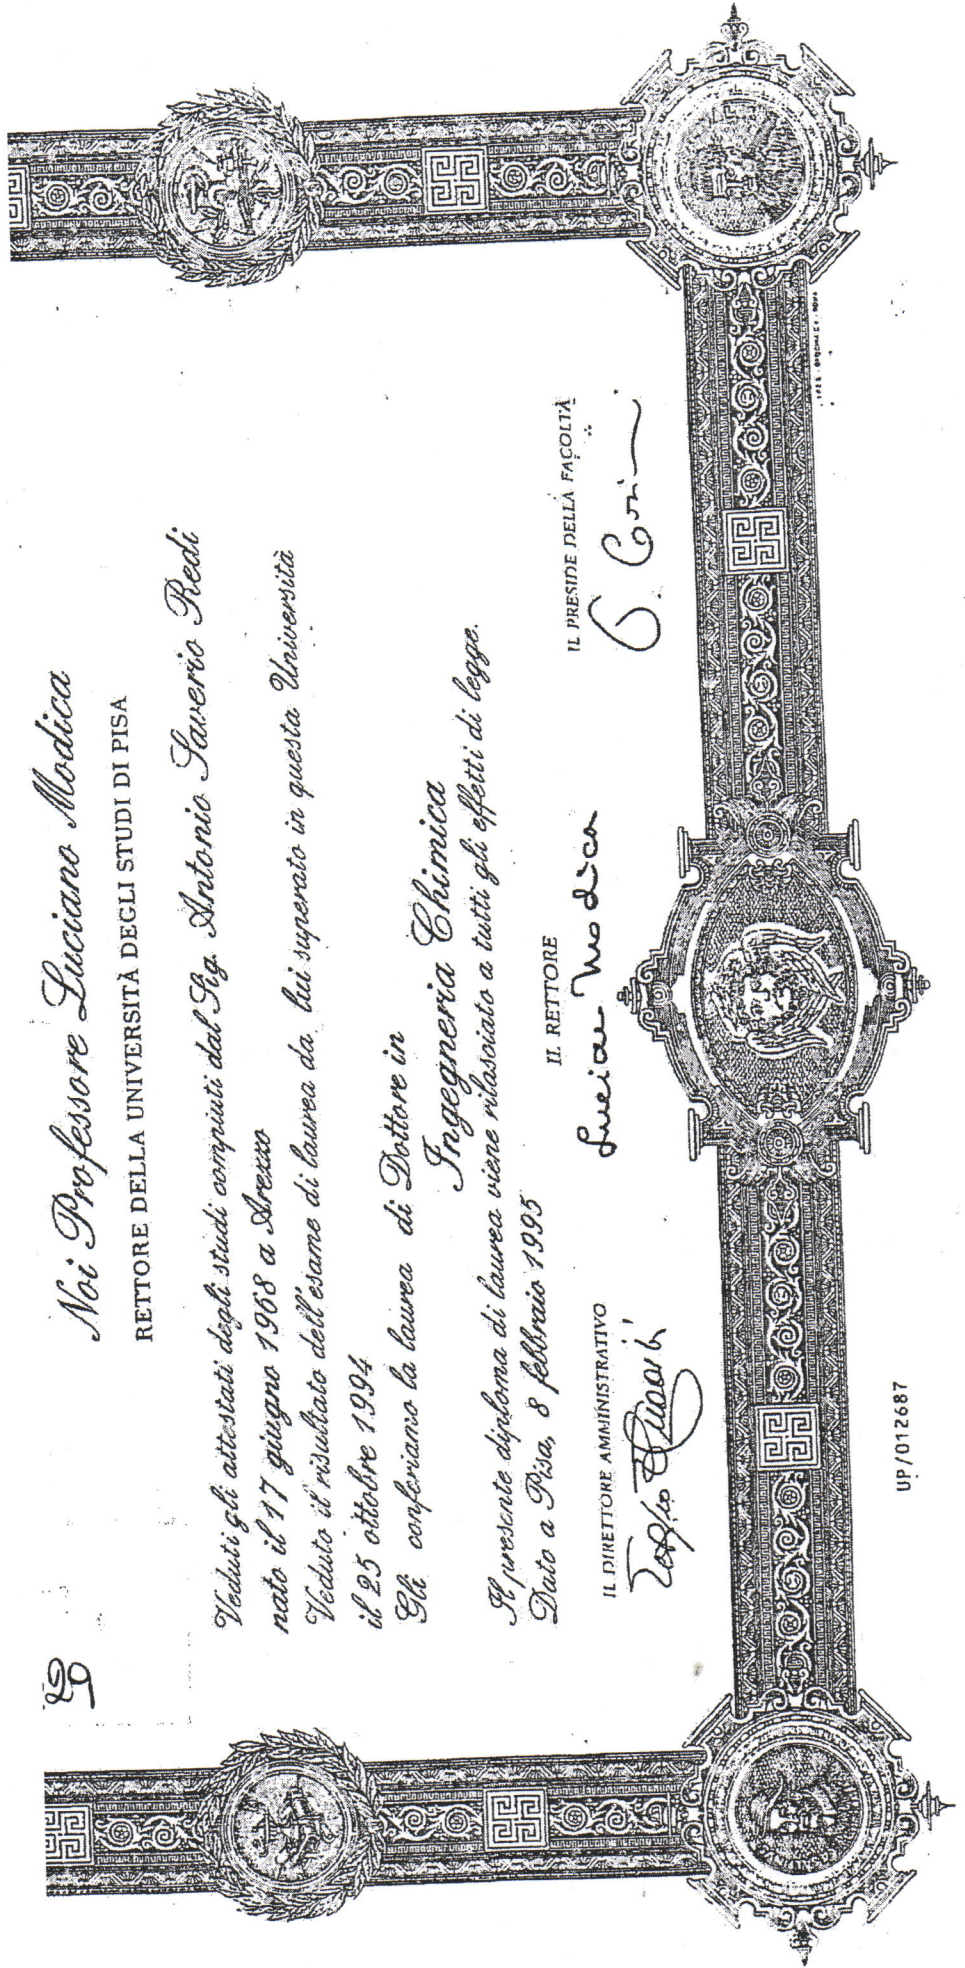 Noi Professore Luciano Modica
RETTORE DELLA UNIVERSITÀ DEGLI STUDI DI PISA
Veduti gli attestati degli studi compiuti dal Sig. Antonio Saverio Redi
nato il 17 giugno 1968 a Arezzo
Veduto il risultato dell'esame di laurea da lui superato in questa Università
il 25 ottobre 1994
Gli conferiamo la laurea di Dottore in
Ingegneria Chimica
Il presente diploma di laurea viene rilasciato a tutti gli effetti di legge.
Dato a Pisa, 8 febbraio 1995
IL DIRETTORE AMMINISTRATIVO
IL RETTORE
Luciano Modica
IL PRESIDE DELLA FACOLTÀ
UP/012687